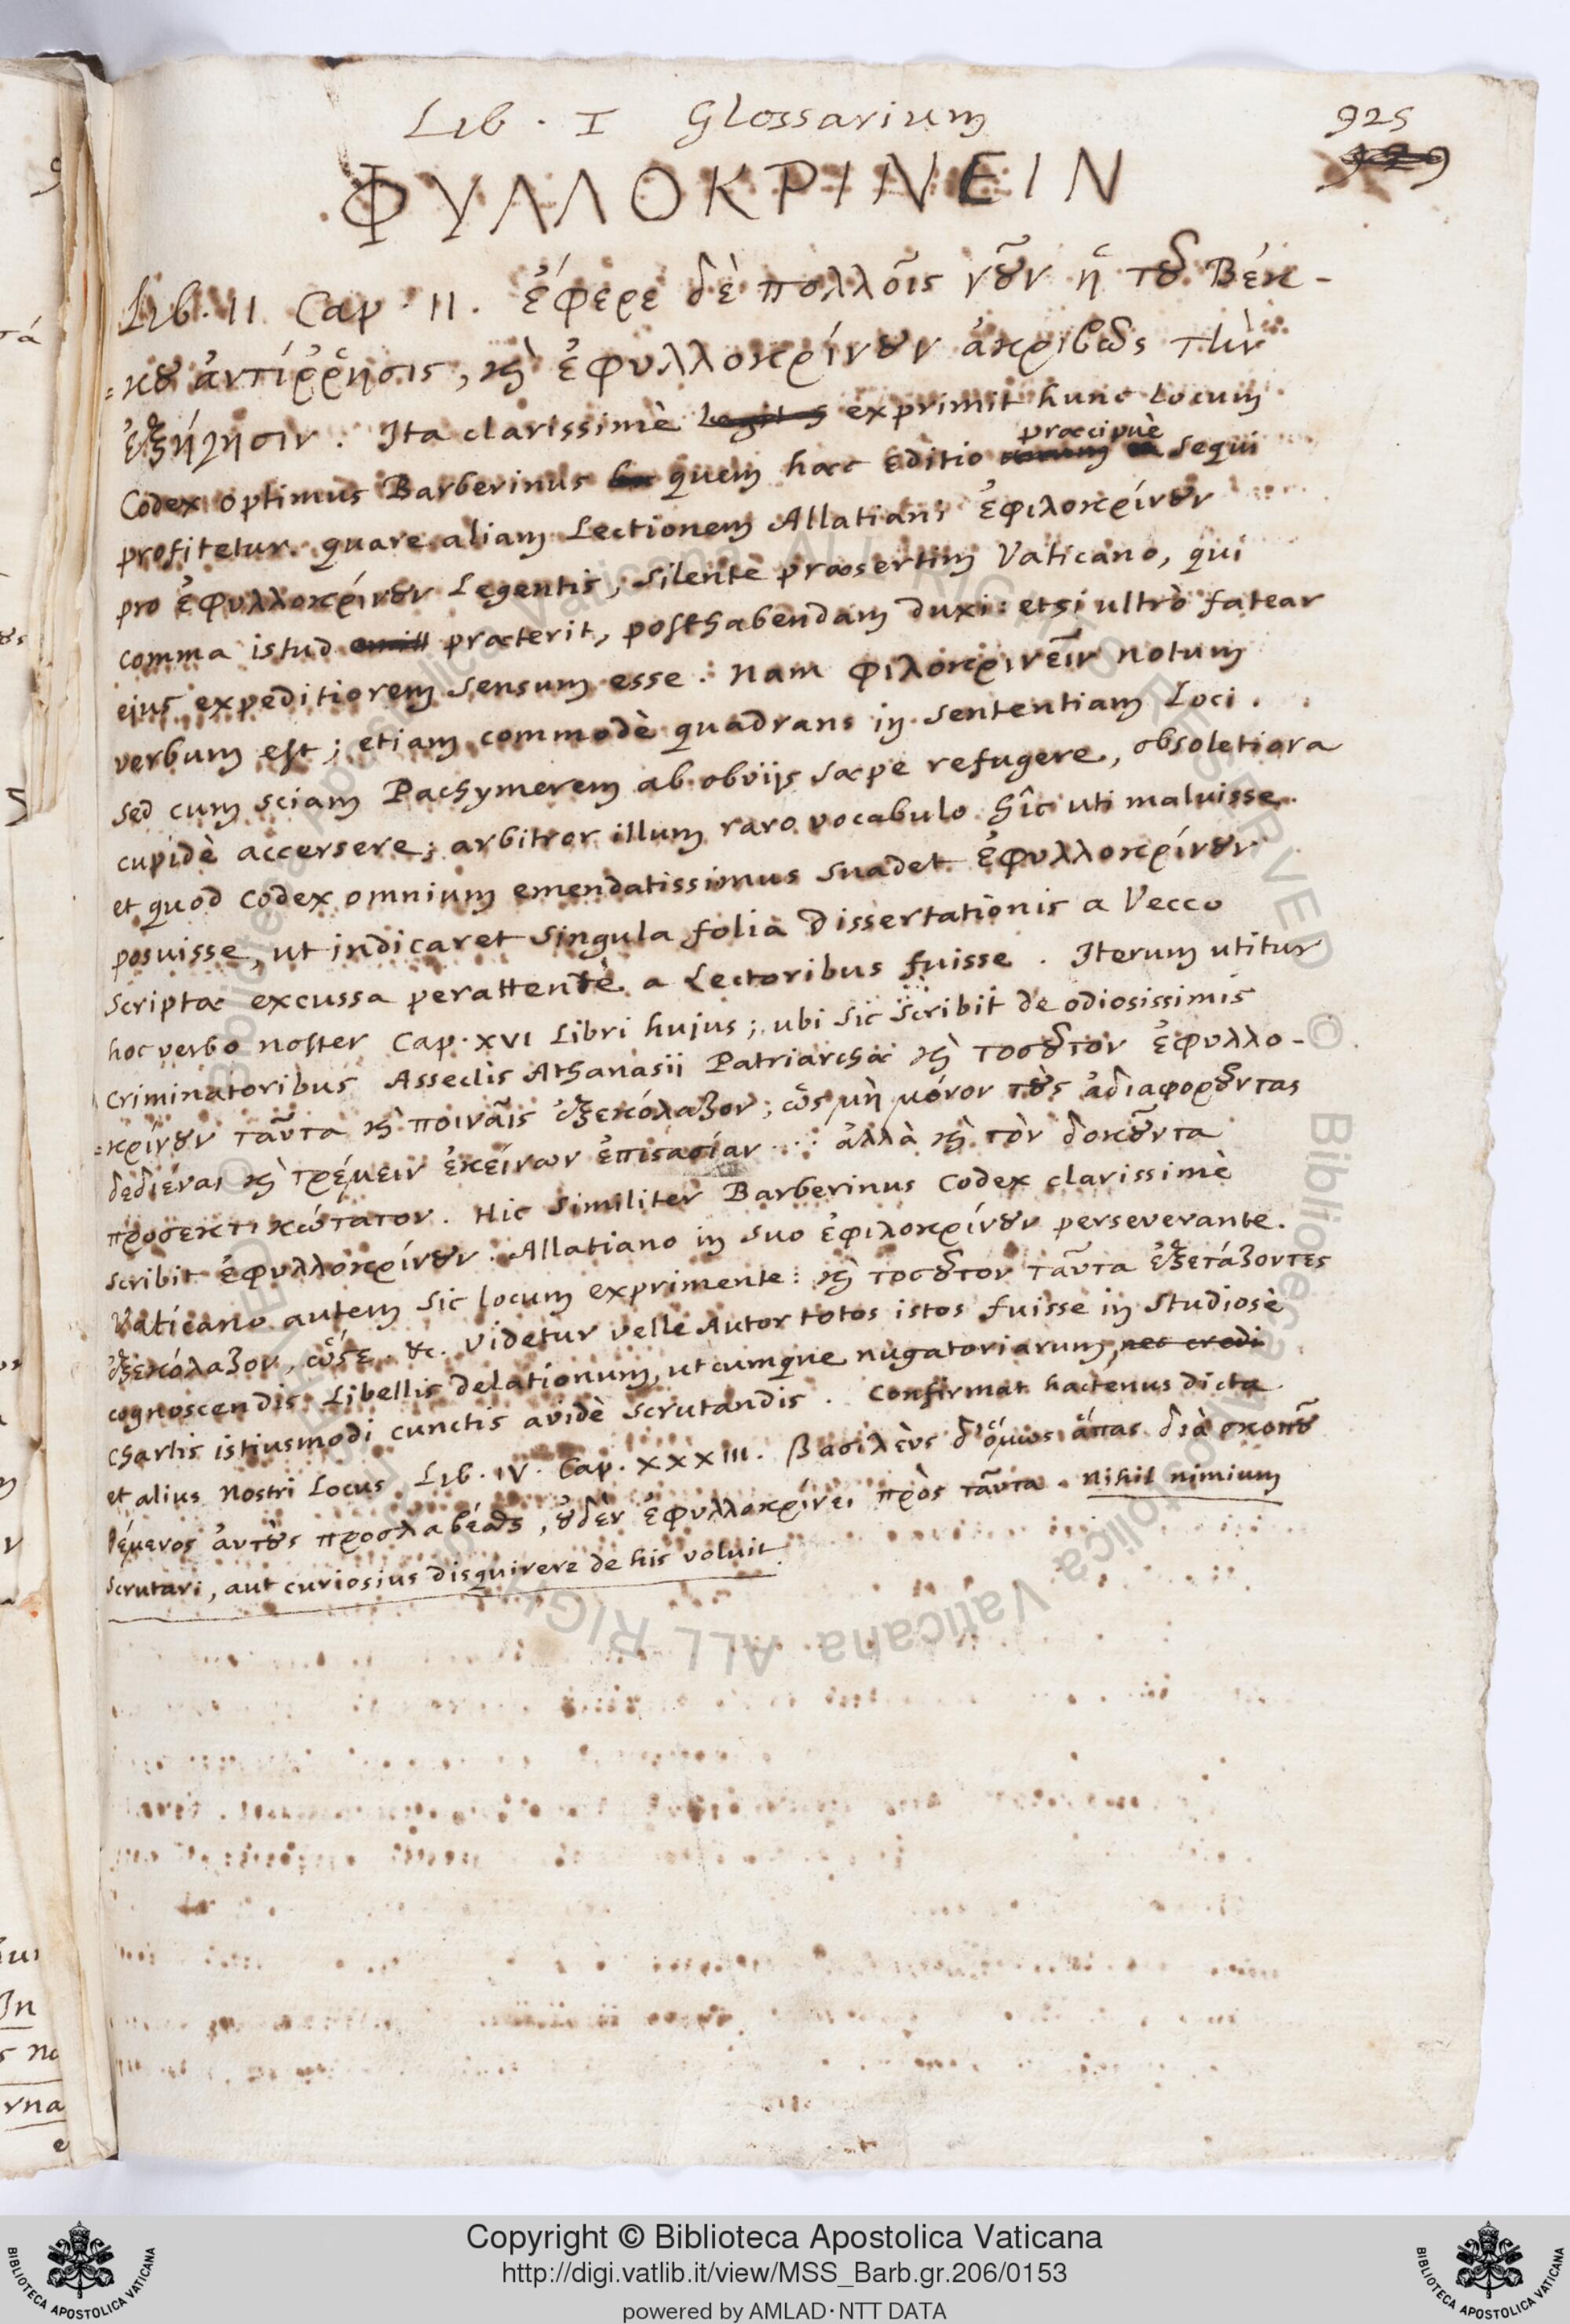 Lib. I Glossarium
925
929
ΦΥΛΛΟΚΡΙΝΕΙΝ
Lib. II Cap. II. ἔφερε δὲ πολλοῖς νοῦν ἡ τοῦ Βέκ-
=κου ἀντίῤῥησις, καὶ ἐφυλλοκρίνουν ἀκριβῶς τὴν
ἐξήγησιν. Ita clarissimè exprimit hunc locum
Codex optimus Barberinus quem hæc editio præcipuè sequi
profitetur. quare aliam Lectionem Allatiani ἐφιλοκρίνουν
pro ἐφυλλοκρίνουν Legentis, silente præsertim Vaticano, qui
comma istud præterit, posthabendam duxi: etsi ultrò fatear
ejus expeditiorem sensum esse. nam φιλοκρινεῖν notum
verbum est; etiam commodè quadrans in sententiam Loci.
sed cum sciam Pachymerem ab obviis sæpe refugere, obsoletiora
cupidè accersere; arbitror illum raro vocabulo hîc uti maluisse.
et quod codex omnium emendatissimus suadet ἐφυλλοκρίνουν
posuisse, ut indicaret singula folia Dissertationis a Vecco
scriptæ excussa perattentè a Lectoribus fuisse. Iterum utitur
hoc verbo noster Cap. XVI Libri hujus; ubi sic scribit de odiosissimis
criminatoribus Asseclis Athanasii Patriarchæ καὶ τοσοῦτον ἐφυλλο-
=κρίνουν ταῦτα καὶ ποιναῖς ἐξεκόλαζον; ὡς μὴ μόνον τοὺς ἀδιαφοροῦντας
δεδιέναι καὶ τρέμειν ἐκείνων ἐπιστασίαν... ἀλλὰ καὶ τὸν δοκοῦντα
προσεκτικώτατον. Hic similiter Barberinus Codex clarissimè
scribit ἐφυλλοκρίνουν. Allatiano in suo ἐφιλοκρίνουν perseverante.
Vaticano autem sic locum exprimente: καὶ τοσοῦτον ταῦτα ἐξετάζοντες
ἐξεκόλαζον, ὥστε. &c. videtur velle Autor totos istos fuisse in studiosè
cognoscendis Libellis delationum, utcumque nugatoriarum, nec credi
chartis istiusmodi cunctis avidè scrutandis. Confirmat hactenus dicta
et alius nostri Locus Lib. IV. Cap. XXXIII. βασιλεὺς δ' ὅμως ἅπας διὰ σκοποῦ
θέμενος αὐτοὺς προσλαβέσθαι, οὐδὲν ἐφυλλοκρίνει πρὸς ταῦτα. nihil nimium
scrutari, aut curiosius disquirere de his voluit.
Copyright © Biblioteca Apostolica Vaticana
http://digi.vatlib.it/view/MSS_Barb.gr.206/0153
powered by AMLAD·NTT DATA
BIBLIOTECA APOSTOLICA VATICANA
BIBLIOTECA APOSTOLICA VATICANA